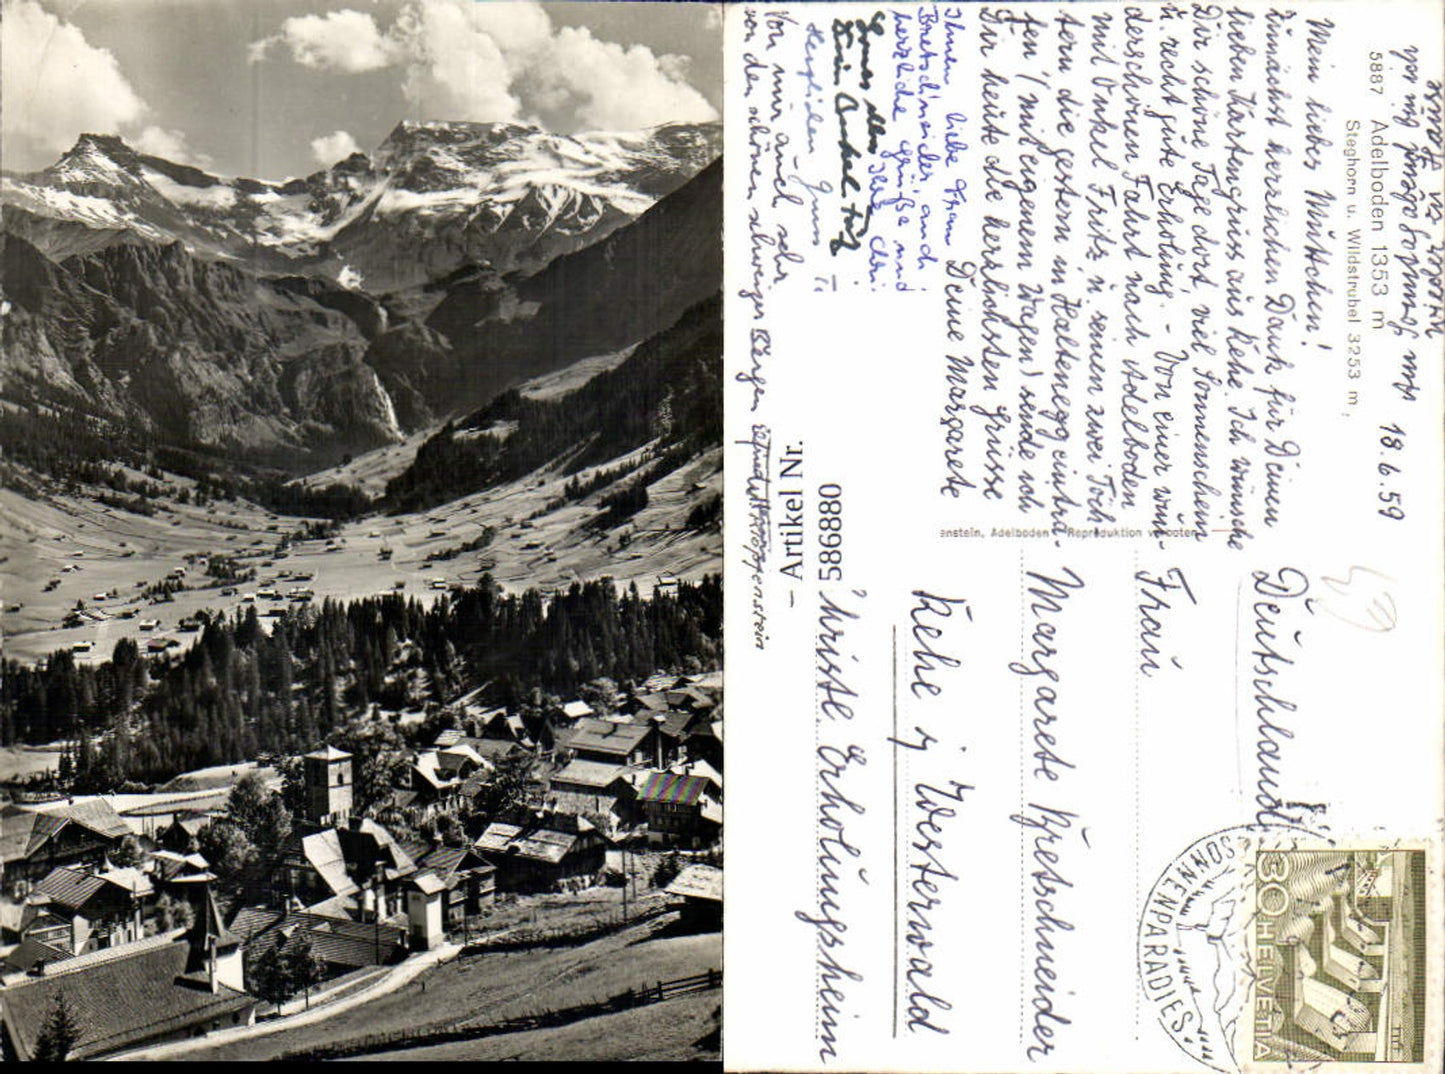 5887 Adelboden 1353 m
Steghorn u. Wildstrubel 3253 m
18.6.59
Mein liebes Müttchen!
Zunächst herzlichen Dank für Deinen
lieben Kartengruss aus Kehe. Ich wünsche
Dir schöne Tage dort, viel Sonnenschein
u. recht gute Erholung. - Von einer wun-
derschönen Fahrt nach Adelboden
mit Onkel Fritz u. seinen zwei Töch-
tern die gestern in Haltenegg eintra-
fen (mit eigenem Wagen) sende ich
Dir heute die herzlichsten Grüsse
Deine Margarete
Ihnen, liebe Frau
Bretschneider auch
herzliche Grüße und
Dein Onkel Fritz
Herzlichen Gruss
Von mir auch sehr
von den schönen schweizer Bergen
enstein, Adelboden Reproduktion verboten
Deutschland
Frau
Margarete Bretschneider
Kehe i/ Westerwald
Christl. Erholungsheim
– Artikel Nr.
586880
SONNENPARADIES
30 HELVETIA